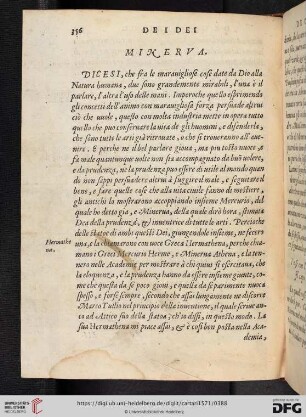 356 DE I DEI
MINERVA.
DICESI, che fra le marauigliose cose date da Dio alla
Natura humana, due sono grandemente mirabili, l'una è il
parlare, l'altra l'uso delle mani. Imperoche quello esprimendo
gli concetti dell'animo con marauigliosa forza persuade altrui
ciò che vuole, questo con molta industria mette in opera tutto
quello che può conseruare la vita de gli huomini, e difenderla,
che sono tutte le arti già ritrouate, e che si troueranno all'aue-
nire. E perche ne il bel parlare gioua, ma piu tosto nuoce, a
fa male quantunque volte non sia accompagnato da buõ volere,
e da prudenza, ne la prudenza può essere di utile al mondo quan
do non sappi persuadere altrui a fuggire il male, e seguitare il
bene, e fare quelle cose che alla vita ciuile fanno di mestiero,
gli antichi lo mostrarono accoppiando insieme Mercurio, del
qual ho detto già, e Minerua, della quale dirò hora, stimata
Dea della prudenza, & inuentrice di tutte le arti. Percioche
delle statoe di ambi questi Dei, giungendole insieme, ne fecero
Hermathe
na.
una, e la chiamarono con voce Greca Hermathena, perche chia-
mano i Greci Mercurio Herme, e Minerua Athena, e la tene-
uano nelle Academie per mostrare à chi quiui si esercitaua, che
la eloquenza, e la prudenza hanno da essere insieme giunte, co-
me che questa da se poco gioui, e quella se parimente nuoca
spesso, e forse sempre, secondo che assai lungamente ne discorre
Marco Tullio nel principio della inuentione, il quale scriue anco
ad Attico suo della statoa, ch'io dissi, in questo modo. La
tua Hermathena mi piace assai, & è così ben posta nella Aca-
demia,
https://digi.ub.uni-heidelberg.de/diglit/cartari1571/0388
© Universitätsbibliothek Heidelberg
UNIVERSITÄTS-
BIBLIOTHEK
HEIDELBERG
Gefördert durch die
DFG